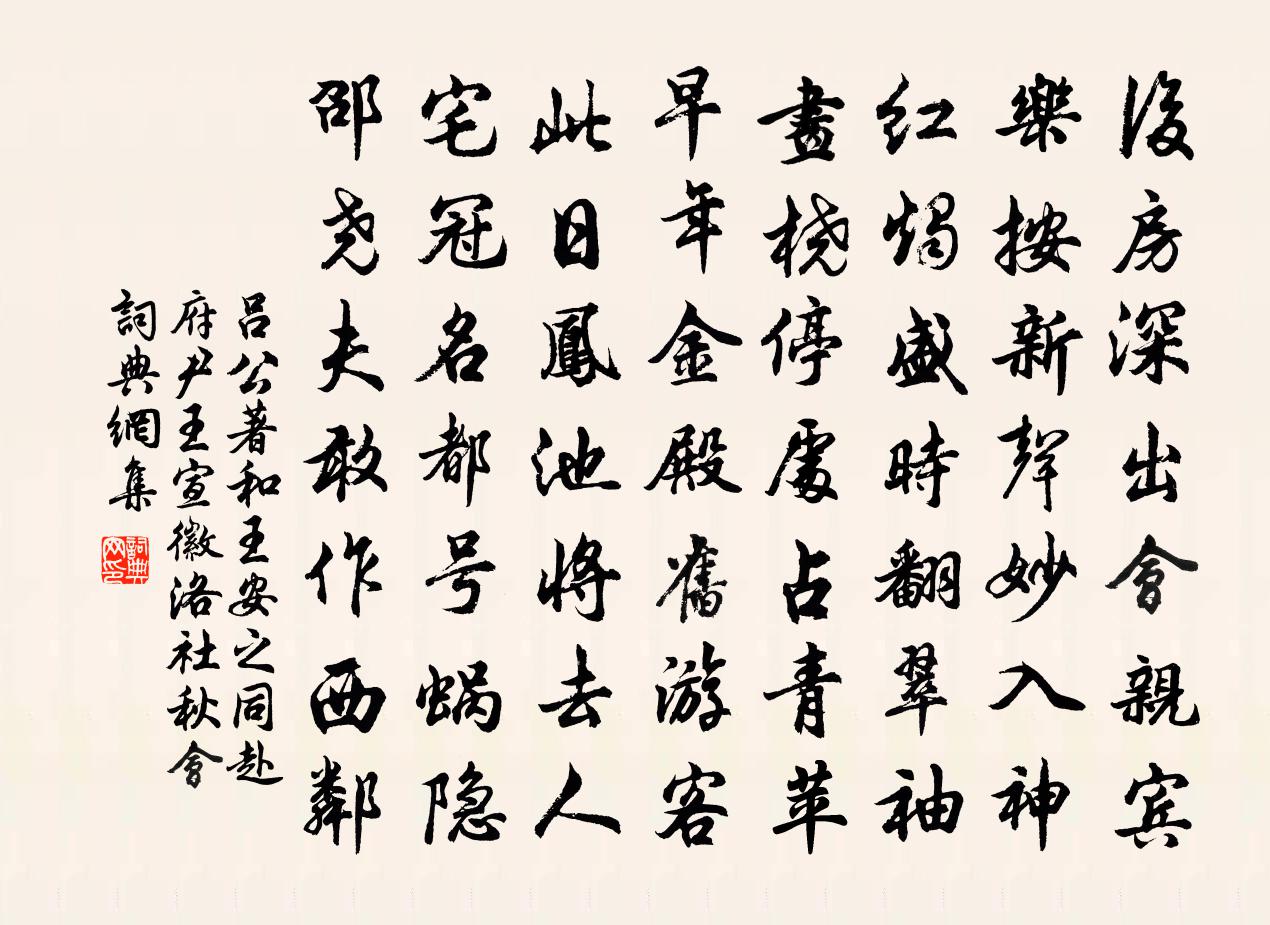 後房深出會親宾
樂按新聲妙入神
紅燭盛時翻翠袖
畫桡停處占青苹
早年金殿舊游客
此日鳳池將去人
宅冠名都号蜗隐
邵尧夫敢作西鄰
吕公著和王安之同赴
府尹王宣徽洛社秋會
詞典網集
詞典网印